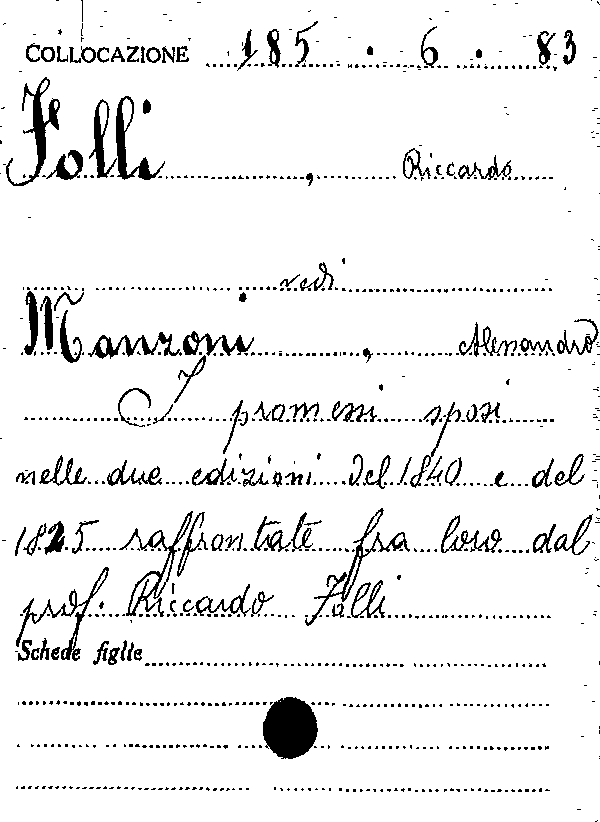 COLLOCAZIONE 185 . 6 . 83
Folli, Riccardo
vedi
Manzoni, Alessandro
I promessi sposi
nelle due edizioni del 1840 e del
1825 raffrontate fra loro dal
prof. Riccardo Folli
Schede figlie